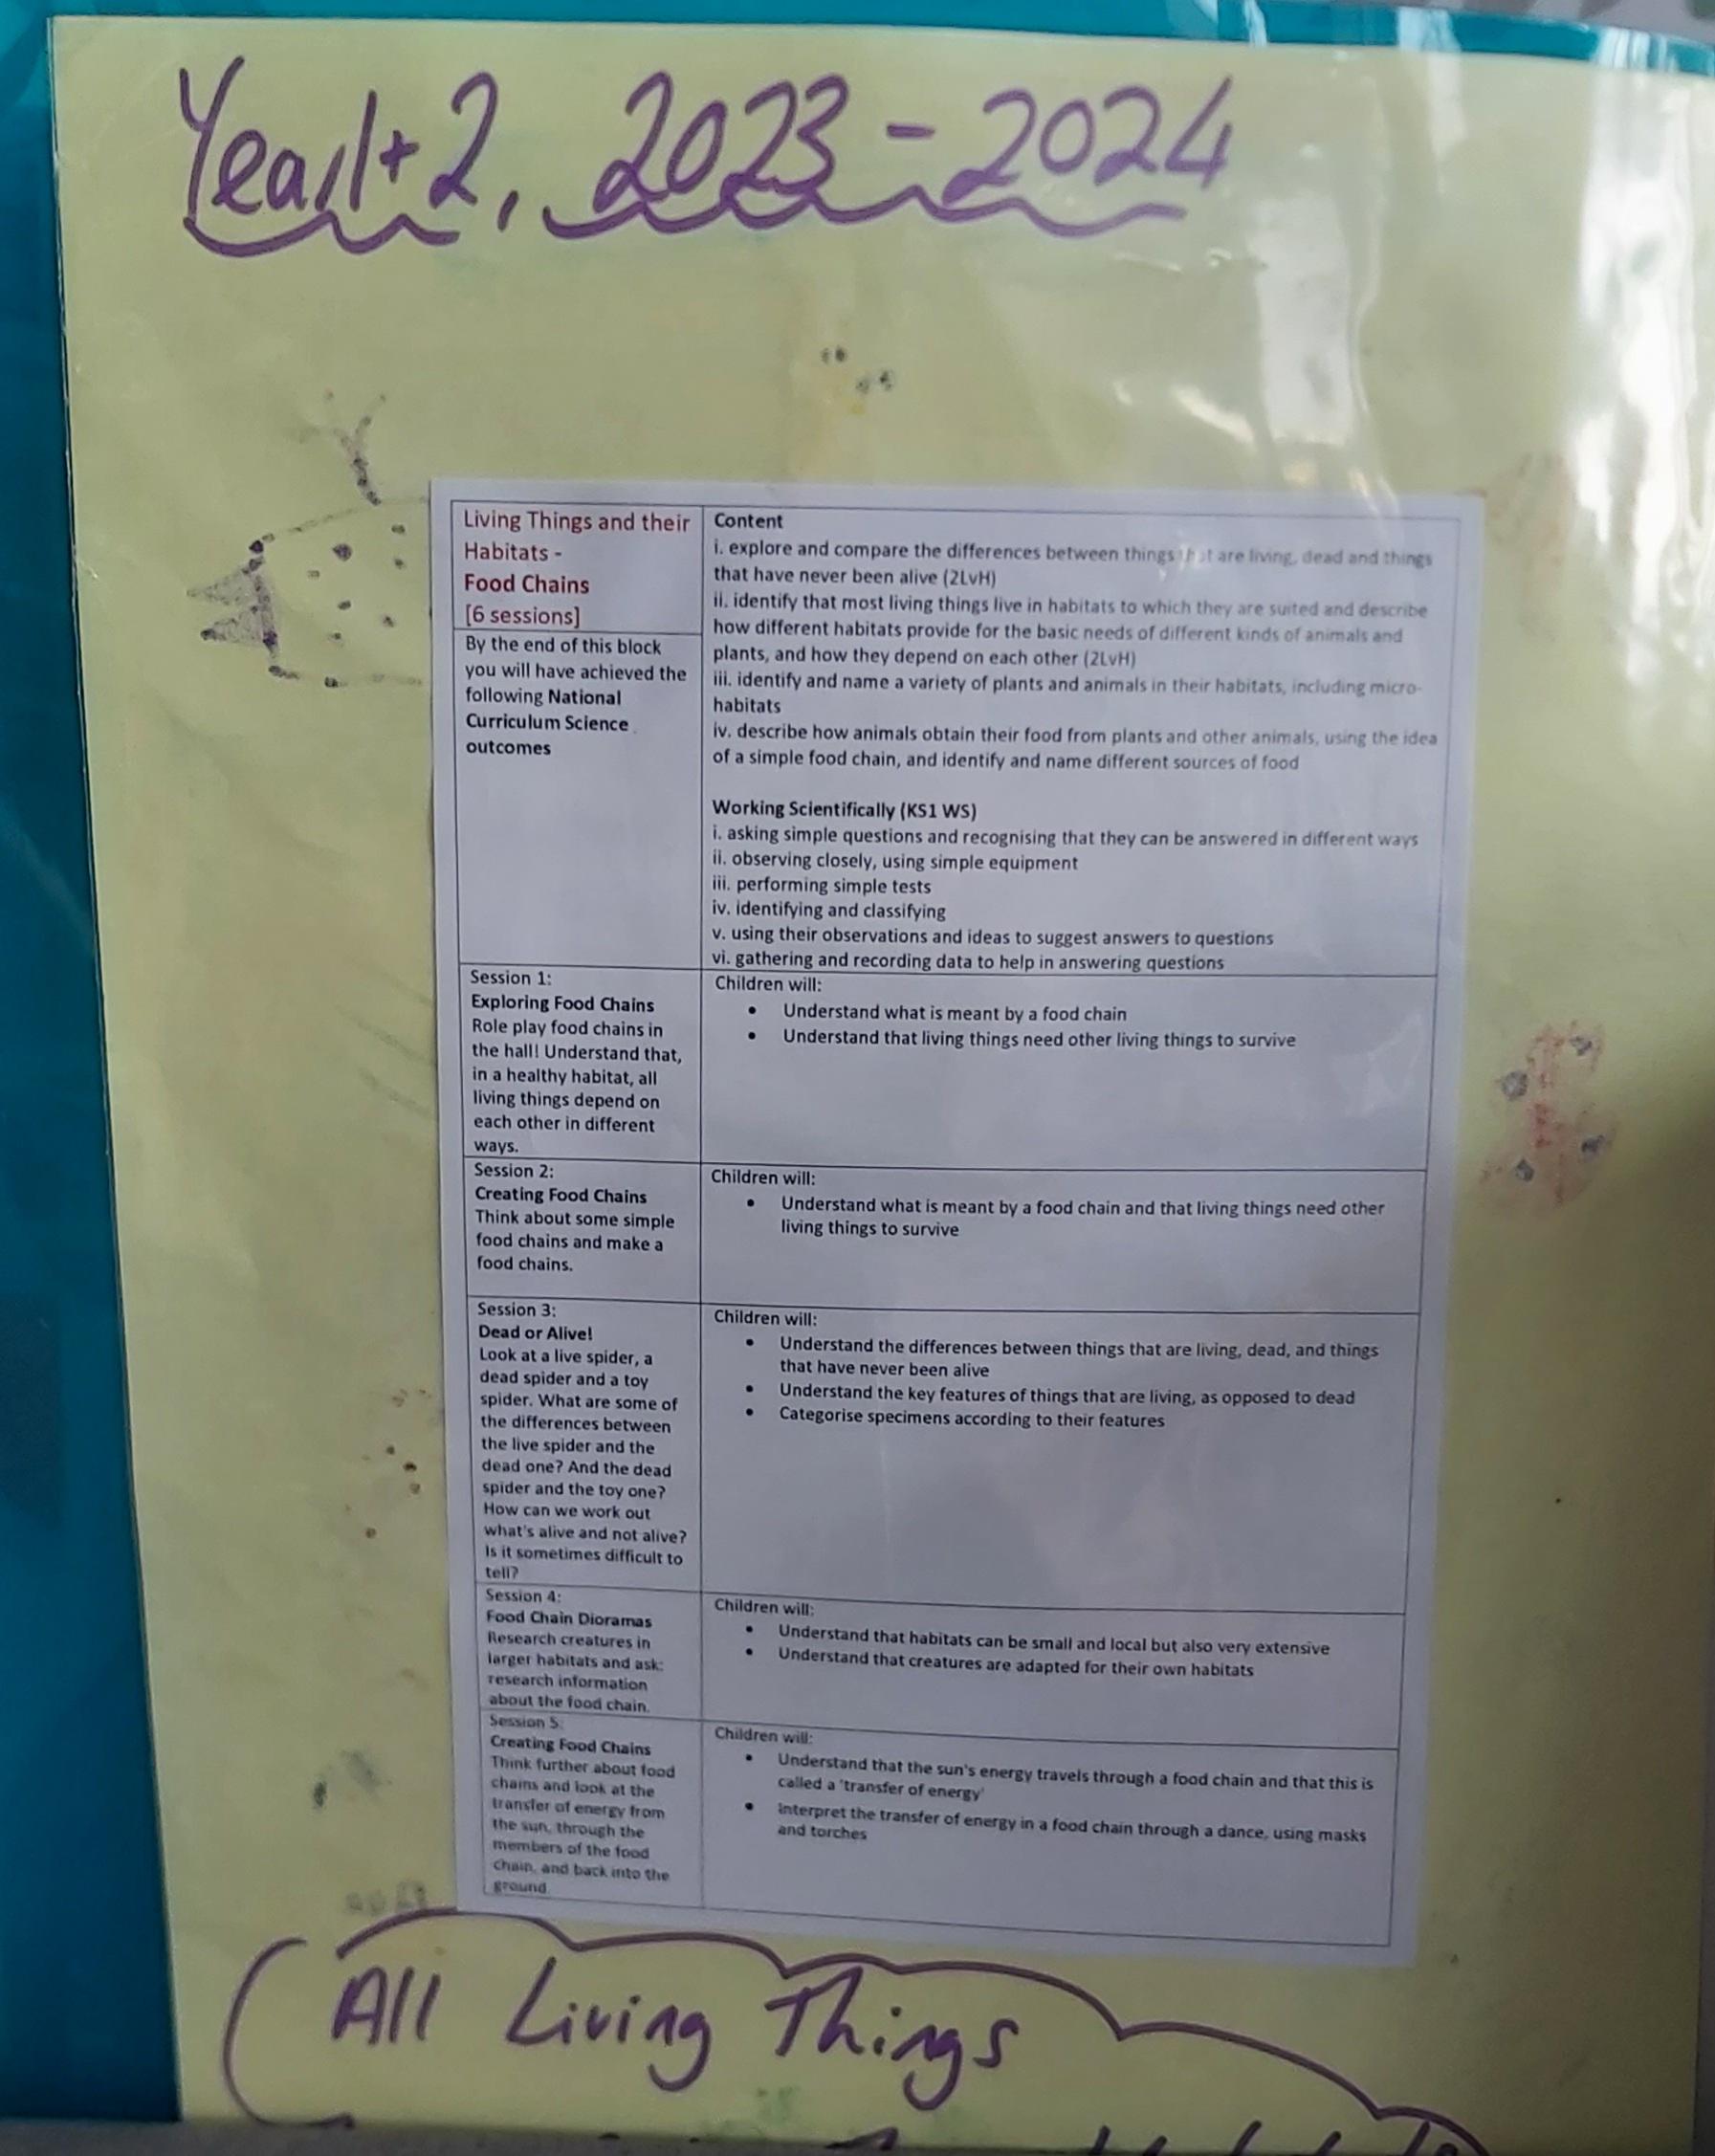 Year 1+2, 2023-2024
Living Things and their
Habitats -
Food Chains
[6 sessions]
By the end of this block
you will have achieved the
following National
Curriculum Science
outcomes
Content
i. explore and compare the differences between things that are living, dead and things
that have never been alive (2LvH)
ii. identify that most living things live in habitats to which they are suited and describe
how different habitats provide for the basic needs of different kinds of animals and
plants, and how they depend on each other (2LvH)
iii. identify and name a variety of plants and animals in their habitats, including micro-
habitats
iv. describe how animals obtain their food from plants and other animals, using the idea
of a simple food chain, and identify and name different sources of food
Working Scientifically (KS1 WS)
i. asking simple questions and recognising that they can be answered in different ways
ii. observing closely, using simple equipment
iii. performing simple tests
iv. identifying and classifying
v. using their observations and ideas to suggest answers to questions
vi. gathering and recording data to help in answering questions
Session 1:
Exploring Food Chains
Role play food chains in
the hall! Understand that,
in a healthy habitat, all
living things depend on
each other in different
ways.
Children will:
• Understand what is meant by a food chain
• Understand that living things need other living things to survive
Session 2:
Creating Food Chains
Think about some simple
food chains and make a
food chains.
Children will:
• Understand what is meant by a food chain and that living things need other
living things to survive
Session 3:
Dead or Alive!
Look at a live spider, a
dead spider and a toy
spider. What are some of
the differences between
the live spider and the
dead one? And the dead
spider and the toy one?
How can we work out
what's alive and not alive?
Is it sometimes difficult to
tell?
Children will:
• Understand the differences between things that are living, dead, and things
that have never been alive
• Understand the key features of things that are living, as opposed to dead
• Categorise specimens according to their features
Session 4:
Food Chain Dioramas
Research creatures in
larger habitats and ask;
research information
about the food chain.
Children will:
• Understand that habitats can be small and local but also very extensive
• Understand that creatures are adapted for their own habitats
Session 5:
Creating Food Chains
Think further about food
chains and look at the
transfer of energy from
the sun, through the
members of the food
chain, and back into the
ground.
Children will:
• Understand that the sun's energy travels through a food chain and that this is
called a 'transfer of energy'
• Interpret the transfer of energy in a food chain through a dance, using masks
and torches
All Living Things